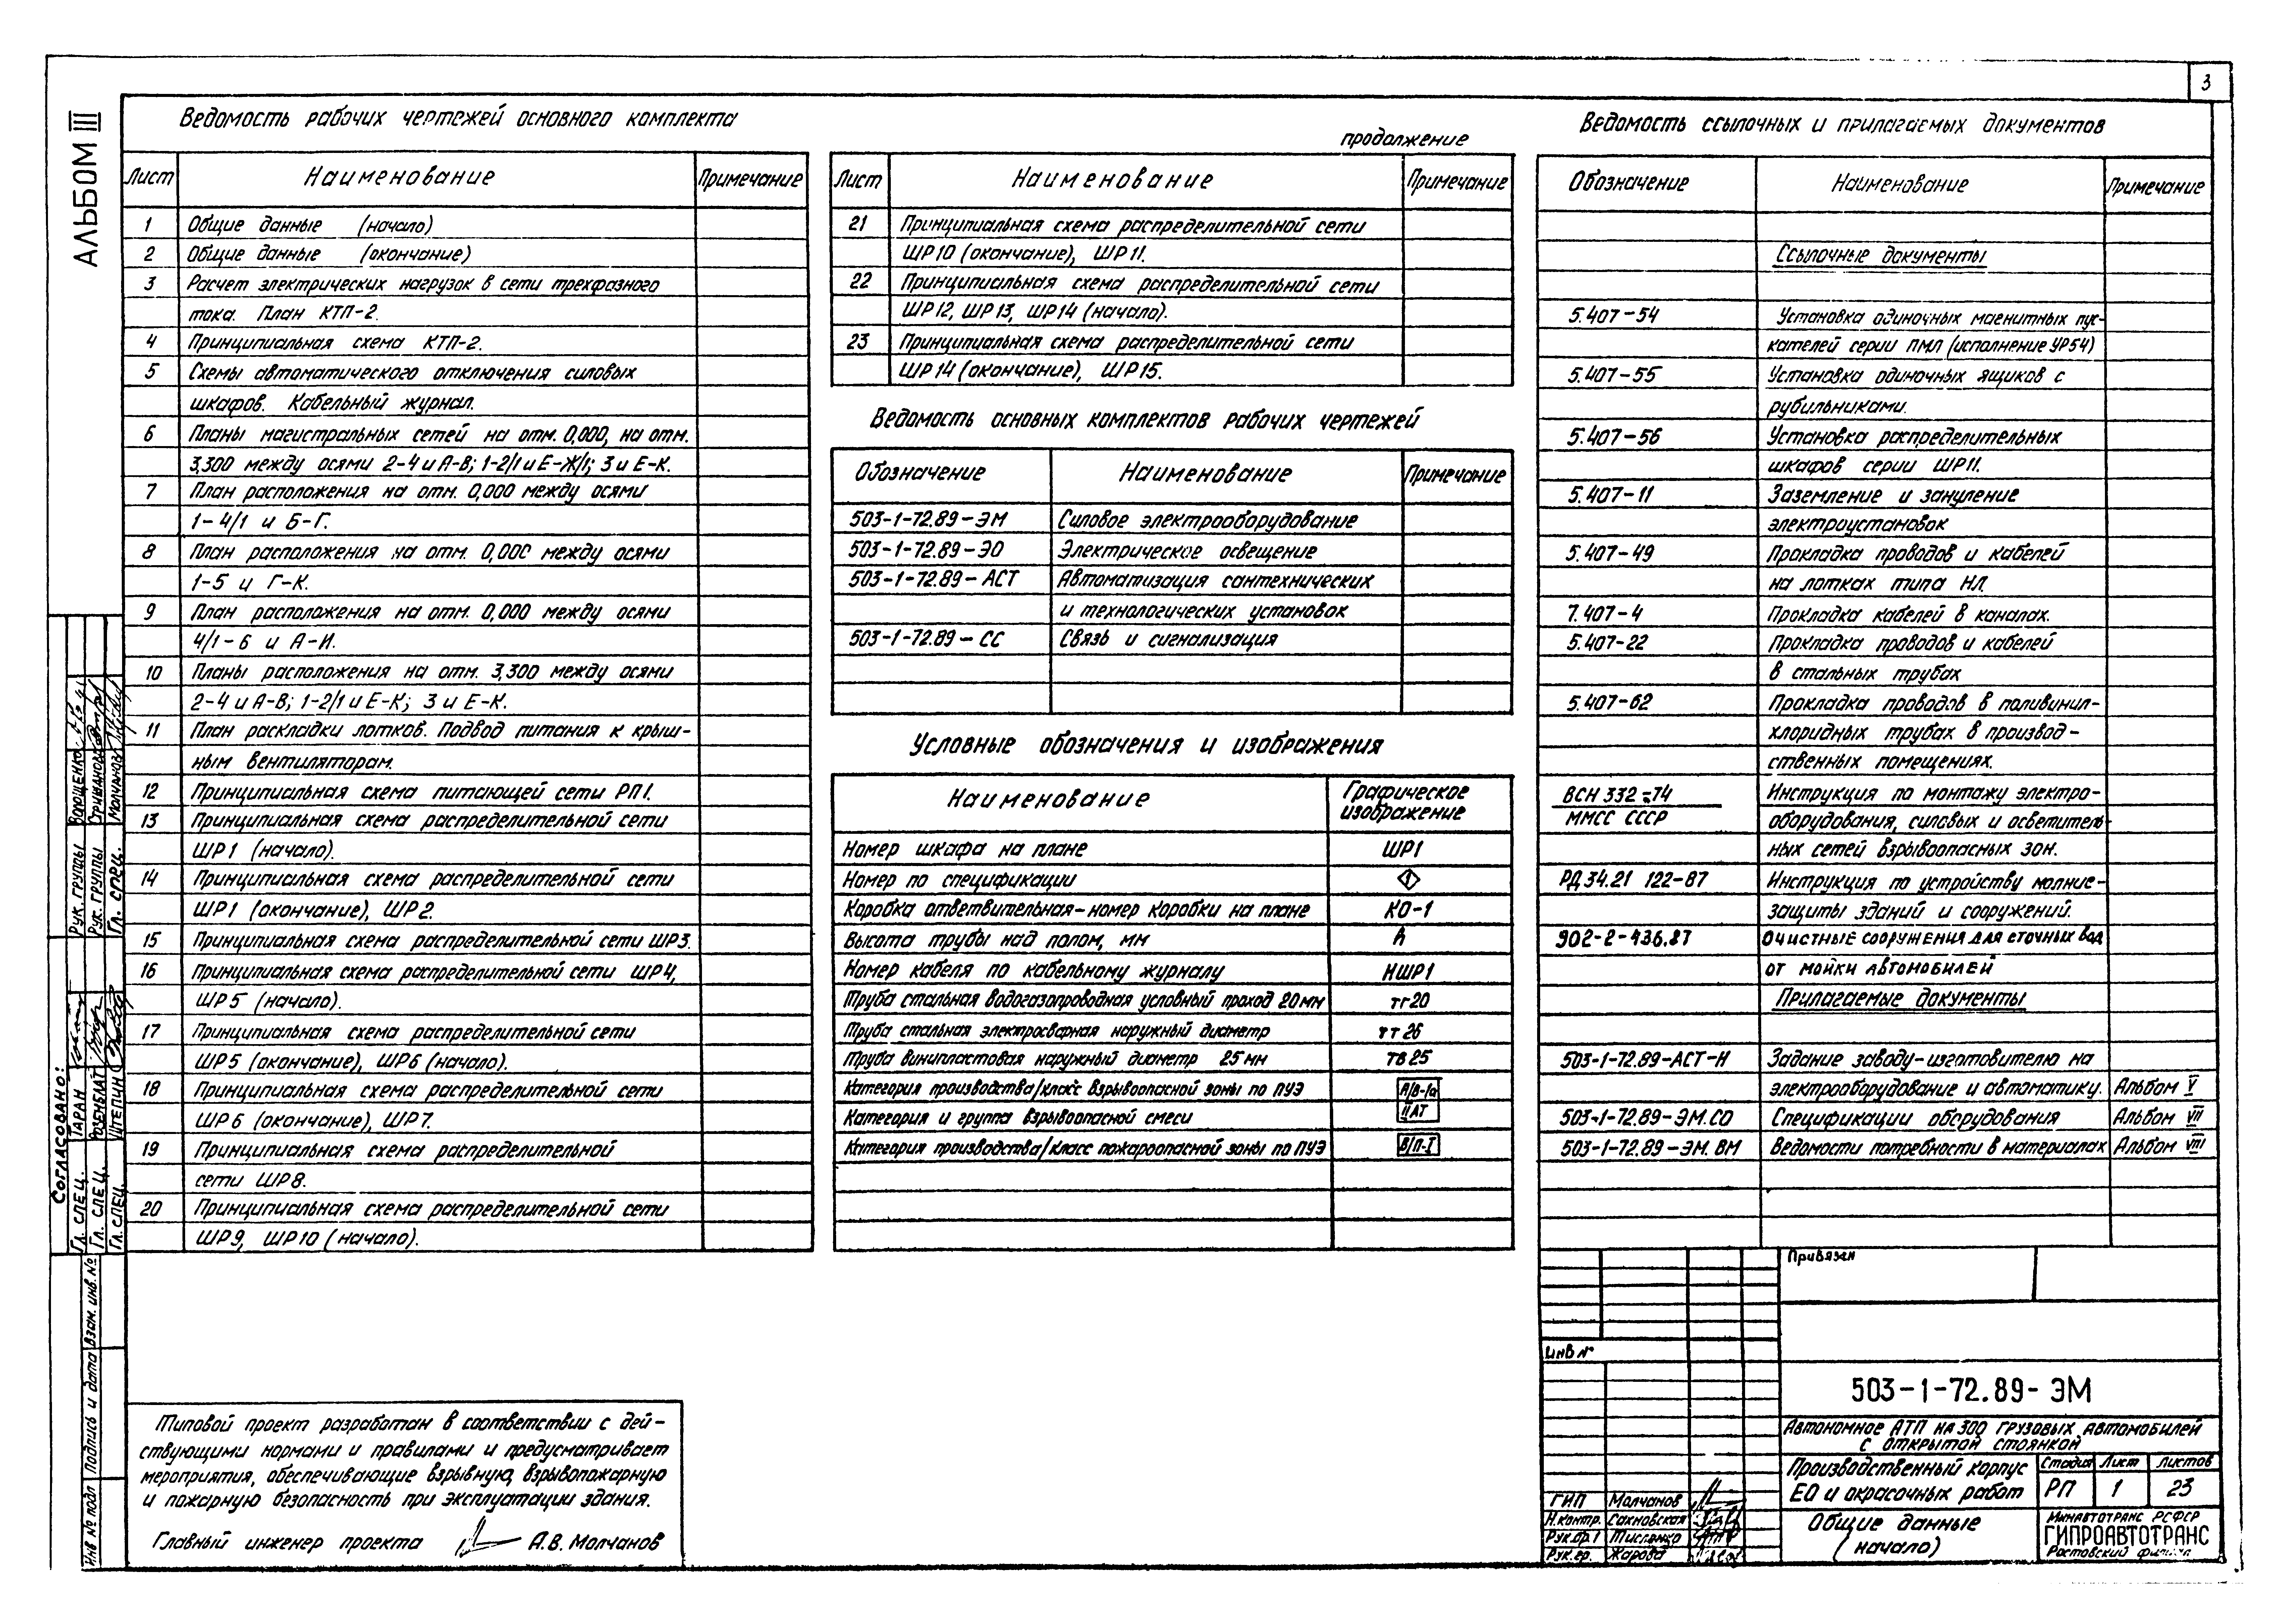 3
АЛЬБОМ III
Ведомость рабочих чертежей основного комплекта
Лист Наименование Примечание
1 Общие данные (начало)
2 Общие данные (окончание)
3 Расчет электрических нагрузок в сети трехфазного
тока. План КТП-2.
4 Принципиальная схема КТП-2.
5 Схемы автоматического отключения силовых
шкафов. Кабельный журнал.
6 Планы магистральных сетей на отм. 0,000, на отм.
3,300 между осями 2-4 и А-В; 1-2/1 и Е-Ж/1; 3 и Е-К.
7 План расположения на отм. 0,000 между осями
1-4/1 и Б-Г.
8 План расположения на отм. 0,000 между осями
1-5 и Г-К.
9 План расположения на отм. 0,000 между осями
4/1-6 и А-И.
10 Планы расположения на отм. 3,300 между осями
2-4 и А-В; 1-2/1 и Е-К; 3 и Е-К.
11 План раскладки лотков. Подвод питания к крыш-
ным вентиляторам.
12 Принципиальная схема питающей сети РП1.
13 Принципиальная схема распределительной сети
ШР1 (начало).
14 Принципиальная схема распределительной сети
ШР1 (окончание), ШР2.
15 Принципиальная схема распределительной сети ШР3.
16 Принципиальная схема распределительной сети ШР4,
ШР5 (начало).
17 Принципиальная схема распределительной сети
ШР5 (окончание), ШР6 (начало).
18 Принципиальная схема распределительной сети
ШР6 (окончание), ШР7.
19 Принципиальная схема распределительной
сети ШР8.
20 Принципиальная схема распределительной сети
ШР9, ШР10 (начало).
продолжение
Лист Наименование Примечание
21 Принципиальная схема распределительной сети
ШР10 (окончание), ШР11.
22 Принципиальная схема распределительной сети
ШР12, ШР13, ШР14 (начало).
23 Принципиальная схема распределительной сети
ШР14 (окончание), ШР15.
Ведомость основных комплектов рабочих чертежей
Обозначение Наименование Примечание
503-1-72.89-ЭМ Силовое электрооборудование
503-1-72.89-ЭО Электрическое освещение
503-1-72.89-АСТ Автоматизация сантехнических
и технологических установок
503-1-72.89-СС Связь и сигнализация
Условные обозначения и изображения
Наименование Графическое
изображение
Номер шкафа на плане ШР1
Номер по спецификации 1
Коробка ответвительная-номер коробки на плане КО-1
Высота трубы над полом, мм h
Номер кабеля по кабельному журналу НШР1
Труба стальная водогазопроводная условный проход 20мм тг20
Труба стальная электросварная наружный диаметр тт26
Труба винипластовая наружный диаметр 25мм тв25
Категория производства/класс взрывоопасной зоны по ПУЭ А/В-Iа
Категория и группа взрывоопасной смеси IIАТ
Категория производства/класс пожароопасной зоны по ПУЭ В/П-I
Ведомость ссылочных и прилагаемых документов
Обозначение Наименование Примечание
Ссылочные документы
5.407-54 Установка одиночных магнитных пус-
кателей серии ПМЛ (исполнение УР54)
5.407-55 Установка одиночных ящиков с
рубильниками.
5.407-56 Установка распределительных
шкафов серии ШР11.
5.407-11 Заземление и зануление
электроустановок
5.407-49 Прокладка проводов и кабелей
на лотках типа НЛ.
7.407-4 Прокладка кабелей в каналах.
5.407-22 Прокладка проводов и кабелей
в стальных трубах
5.407-62 Прокладка проводов в поливинил-
хлоридных трубах в производ-
ственных помещениях.
ВСН 332-74 Инструкция по монтажу электро-
ММСС СССР оборудования, силовых и осветитель-
ных сетей взрывоопасных зон.
РД 34.21 122-87 Инструкция по устройству молние-
защиты зданий и сооружений.
902-2-436.87 Очистные сооружения для сточных вод
от мойки автомобилей
Прилагаемые документы
503-1-72.89-АСТ-Н Задание заводу-изготовителю на
электрооборудование и автоматику. Альбом V
503-1-72.89-ЭМ.СО Спецификации оборудования Альбом VII
503-1-72.89-ЭМ.ВМ Ведомости потребности в материалах Альбом VIII
Типовой проект разработан в соответствии с дей-
ствующими нормами и правилами и предусматривает
мероприятия, обеспечивающие взрывную, взрывопожарную
и пожарную безопасность при эксплуатации здания.
Главный инженер проекта А.В. Молчанов
Привязан
Инв №
503-1-72.89-ЭМ
Автономное АТП на 300 грузовых автомобилей
с открытой стоянкой
Производственный корпус
ЕО и окрасочных работ
Стадия Лист Листов
РП 1 23
Общие данные
(начало)
Минавтотранс РСФСР
ГИПРОАВТОТРАНС
Ростовский филиал
ГИП Молчанов
Н.контр. Сахновская
Рук.гр.
Рук.гр. Жарова
Согласовано:
Гл. спец. Таран
Гл. спец. Розенблат
Гл. спец. Щепин
Рук. группы
Рук. группы
Гл. спец. Молчанов
Инв № подл Подпись и дата Взам. инв. №